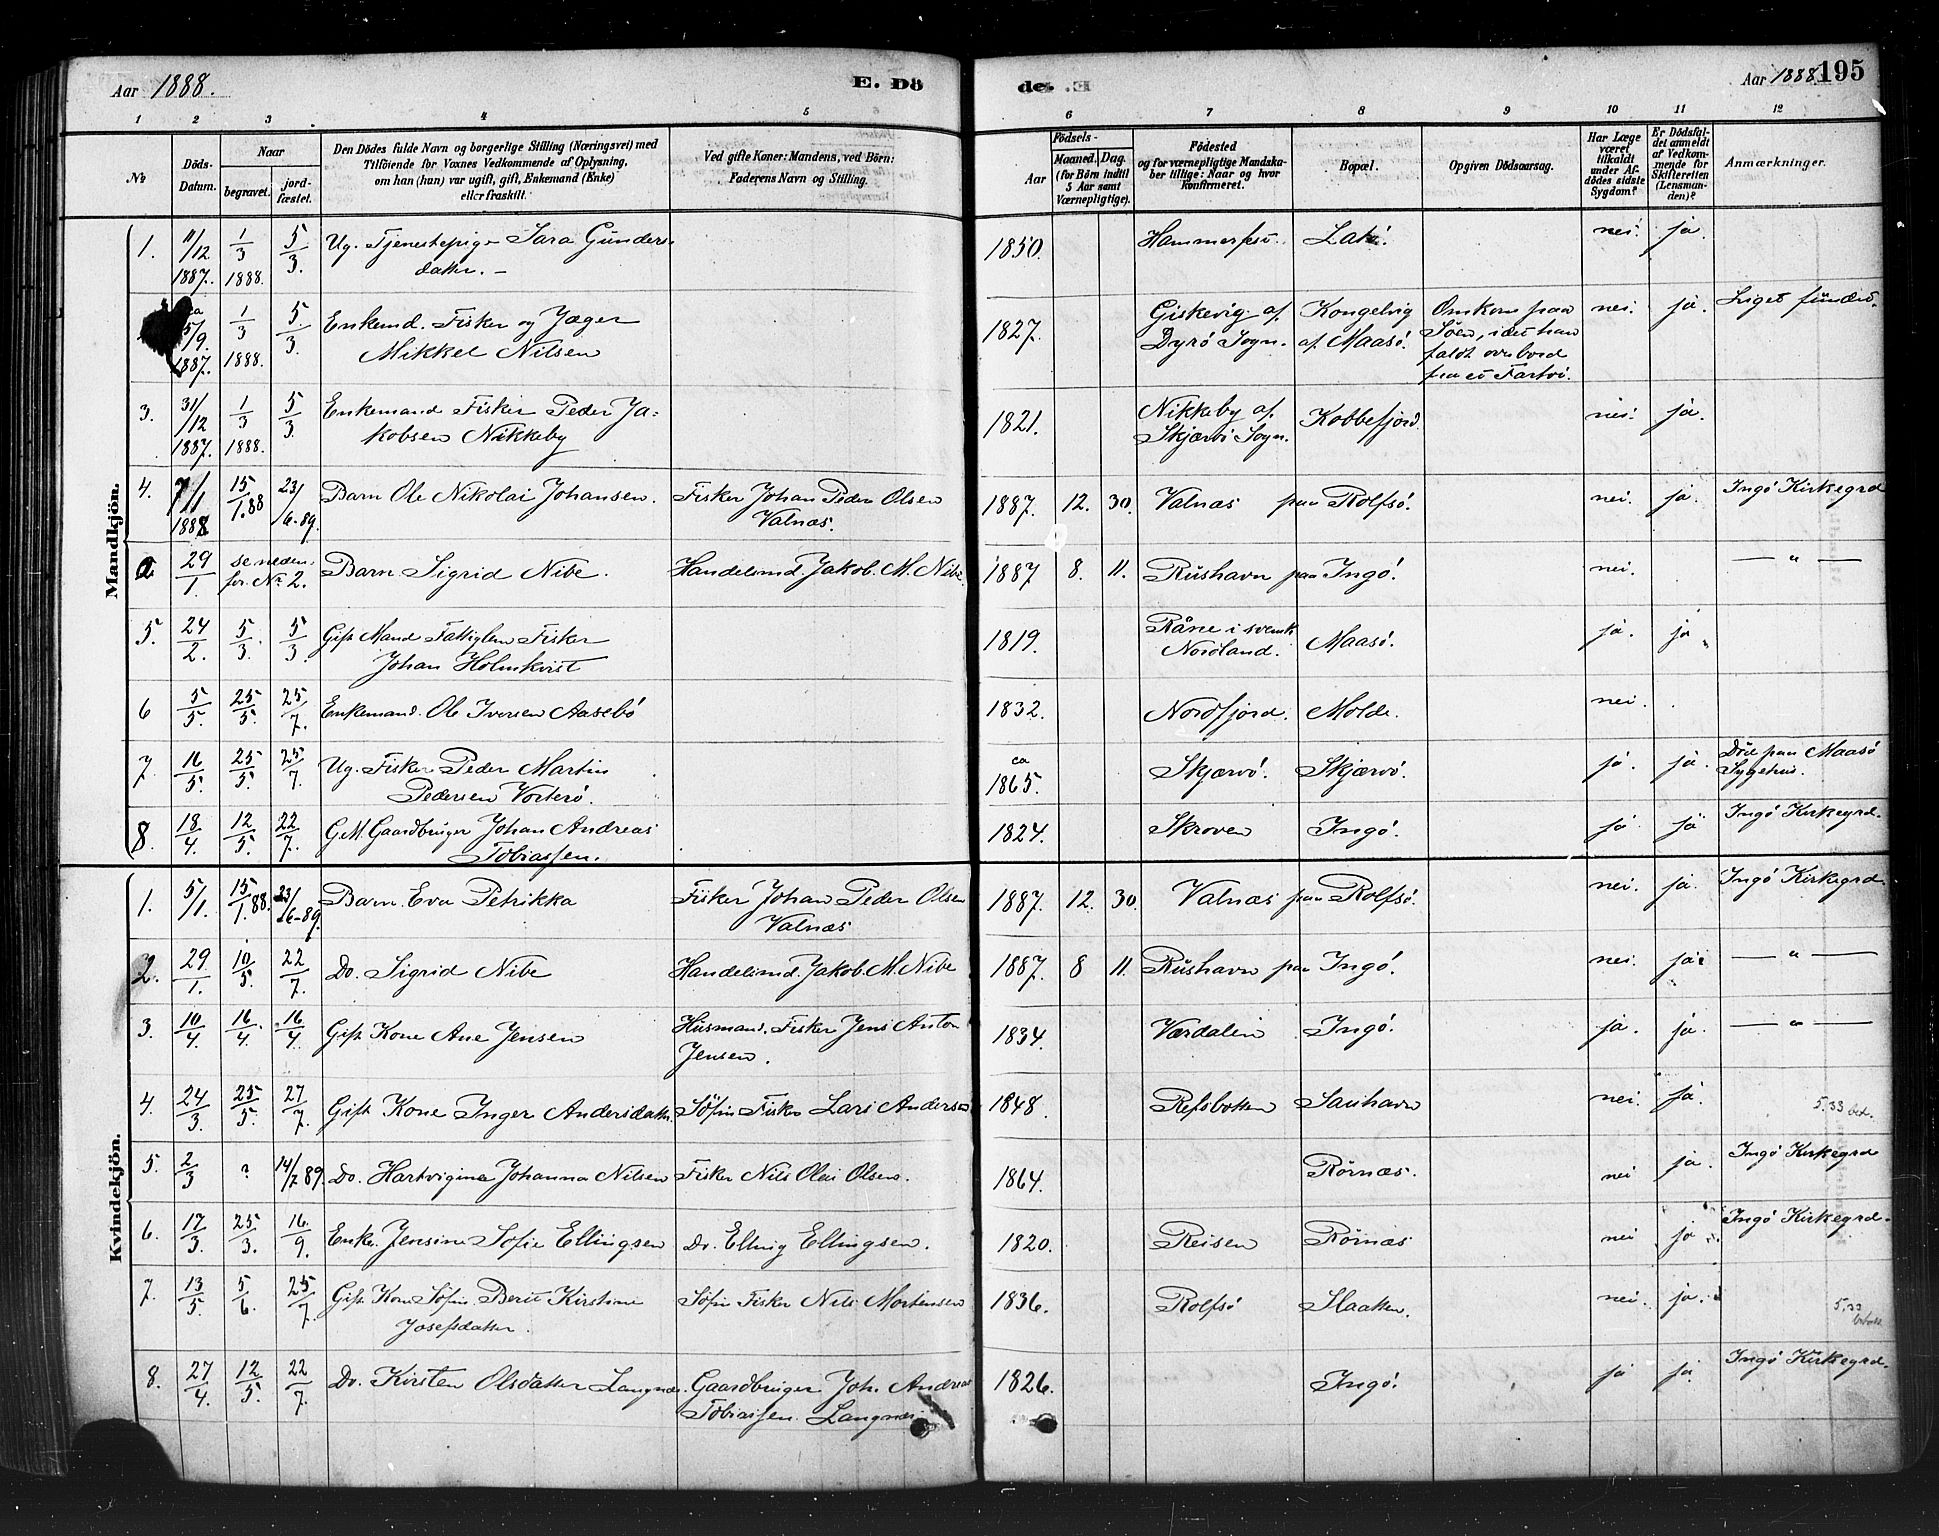 Aar 1888.
E. Dö
de.
Aar 1888.
195
1 2 3 4 5 6 7 8 9 10 11 12
№
Döds-
Datum.
Naar
begravet.
jord-
fæstet.
Den Dödes fulde Navn og borgerlige Stilling (Næringsvei) med
Tilföiende for Voxnes Vedkommende af Oplysning,
om han (hun) var ugift, gift, Enkemand (Enke)
eller fraskilt.
Ved gifte Koner: Mandens, ved Börn:
Faderens Navn og Stilling.
Aar
Födsels-
Maaned. Dag.
(for Börn indtil
5 Aar samt
Værnepligtige).
Födested
og for værnepligtige Mandska-
ber tillige: Naar og hvor
konfirmeret.
Bopæl.
Opgiven Dödsaarsag.
Har Læge
været
tilkaldt
under Af-
dödes sidste
Sygdom?
Er Dödsfal-
det anmeldt
af Vedkom-
mende for
Skifteretten
(Lensman-
den)?
Anmærkninger.
Mandkjön.
1. 11/12 1887. 1/3 1888. 5/3. Ug. Tjenestepige Sara Gunders-
datter. 1850. Lak. nei. ja.
5/9. 1887. 1/3 1888. 5/3. Enkemd. Fisker og Jæger
Mikkel Nilsen 1827. Giskevig af
Dyrö Sogn. Kongelvig
af Maasö. Omkom paa
Söen, idet han
faldt overbord
fra et Fartöi. nei. ja. Liget fundet.
3. 31/12 1887. 1/3 1888. 5/3. Enkemand Fisker Peder Ja-
kobsen Nikkeby 1821. Nikkeby af
Skjærvö Sogn. Kobbefjord nei. ja.
4. 7/1 1888 15/1.88 23/6-89. Barn Ole Nikolai Johansen. Fisker Johan Peder Olsen
Valnæs. 1887. 12. 30. Valnæs paa Rolfsö. nei. ja. Ingö Kirkegrd
29/1. se neden-
for No 2. Barn Sigrid Nibe. Handelsmd. Jakob M. Nibe. 1887 8. 11. Rushavn paa Ingö. nei. — " —
5. 24/2. 5/3. 5/3. Gift Mand Fattiglem Fisker
Johan Holmkvist 1819. Råne i svensk
Nordland. Maasö. ja. ja
6 5/5. 25/5. 25/7. Enkemand. Ole Iversen Aasebö 1832. Nordfjord. Molde. nei.
7. 16/5. 25/5. 25/7. Ug. Fisker Peder Martin
Pedersen Vorterö. ca
1865. Skjærvö. Skjærvö. ja. ja. Död paa Maasö
Sygehus.
8. 18/4. 12/5. 22/7. G.M. Gaardbruger Johan Andreas
Tobiassen. 1824. Skroven Ingö. ja ja Ingö Kirkegrd.
Kvindekjön.
1. 5/1. 15/1.88. 23/6-89. Barn Eva Petrikka Fisker Johan Peder Olsen
Valnæs 1887. 12. 30. Valnæs paa Rolfsö. nei. ja. Ingö Kirkegrd.
2. 29/1. 10/5. 22/7. Do. Sigrid Nibe Handelsmd. Jakob M. Nibe 1887. 8 11. Rushavn paa Ingö. nei. ja. — " —
3. 10/4. 16/4. 16/4. Gift Kone Ane Jensen Husmand. Fisker Jens Anton
Jensen. 1834. Værdalen Ingö. ja. ja. — " —
4. 24/3. 25/5. 27/7. Gift Kone Inger Andersdatter. Söfin Fisker Lars Andersen 1848. Refsbotten Sauhavn nei. ja. 5.33 bet.
5. 2/3 ? 14/7 89. Do. Hartvigine Johanna Nilsen Fisker Nils Olai Olsen. 1864. Rörnæs. nei ja. Ingö Kirkegrd
6. 17/3. 25/3. 16/9. Enke. Jensine Sofie Ellingsen Do. Elling Ellingsen. 1820. Reisen Rörnæs nei ja Ingö Kirkegrd.
7. 13/5. 5/6. 25/7. Gift Kone Söfin. Berit Kirstine
Josefsdatter. Söfin Fisker Nils Mortensen 1836. Rolfsö Slaatten. nei. ja. 5.33
8. 27/4. 12/5. 22/7. Do. Kirsten Olsdatter Langnæs. Gaardbruger Joh. Andreas
Tobiassen. Langnæs. 1826. Ingö. ja ja. Ingö Kirkegrd.